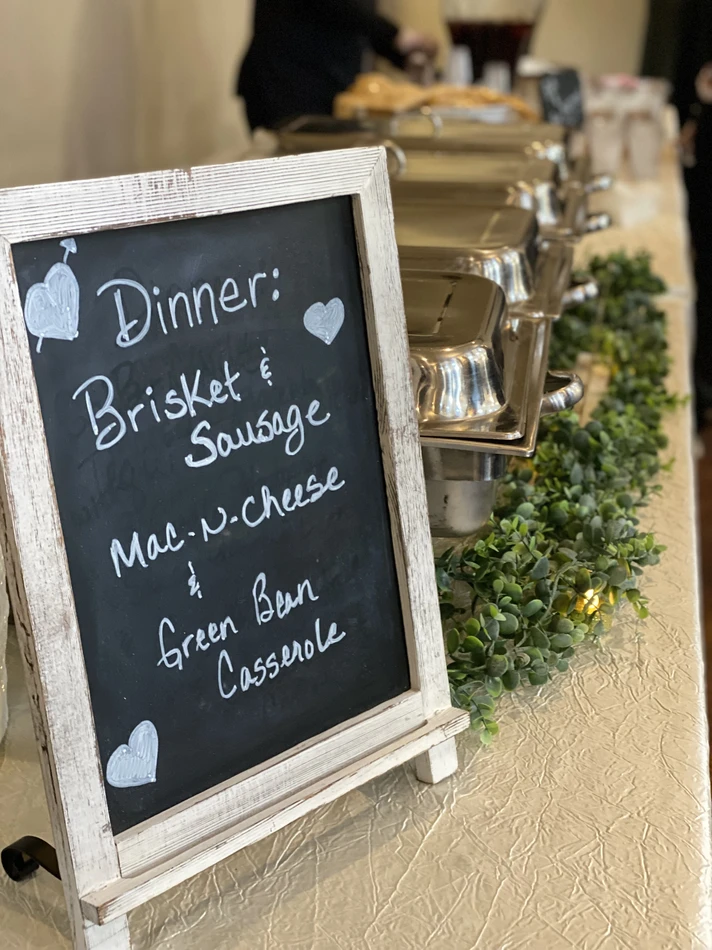 Dinner:
Brisket &
Sausage
Mac-N-Cheese
&
Green Bean
Casserole